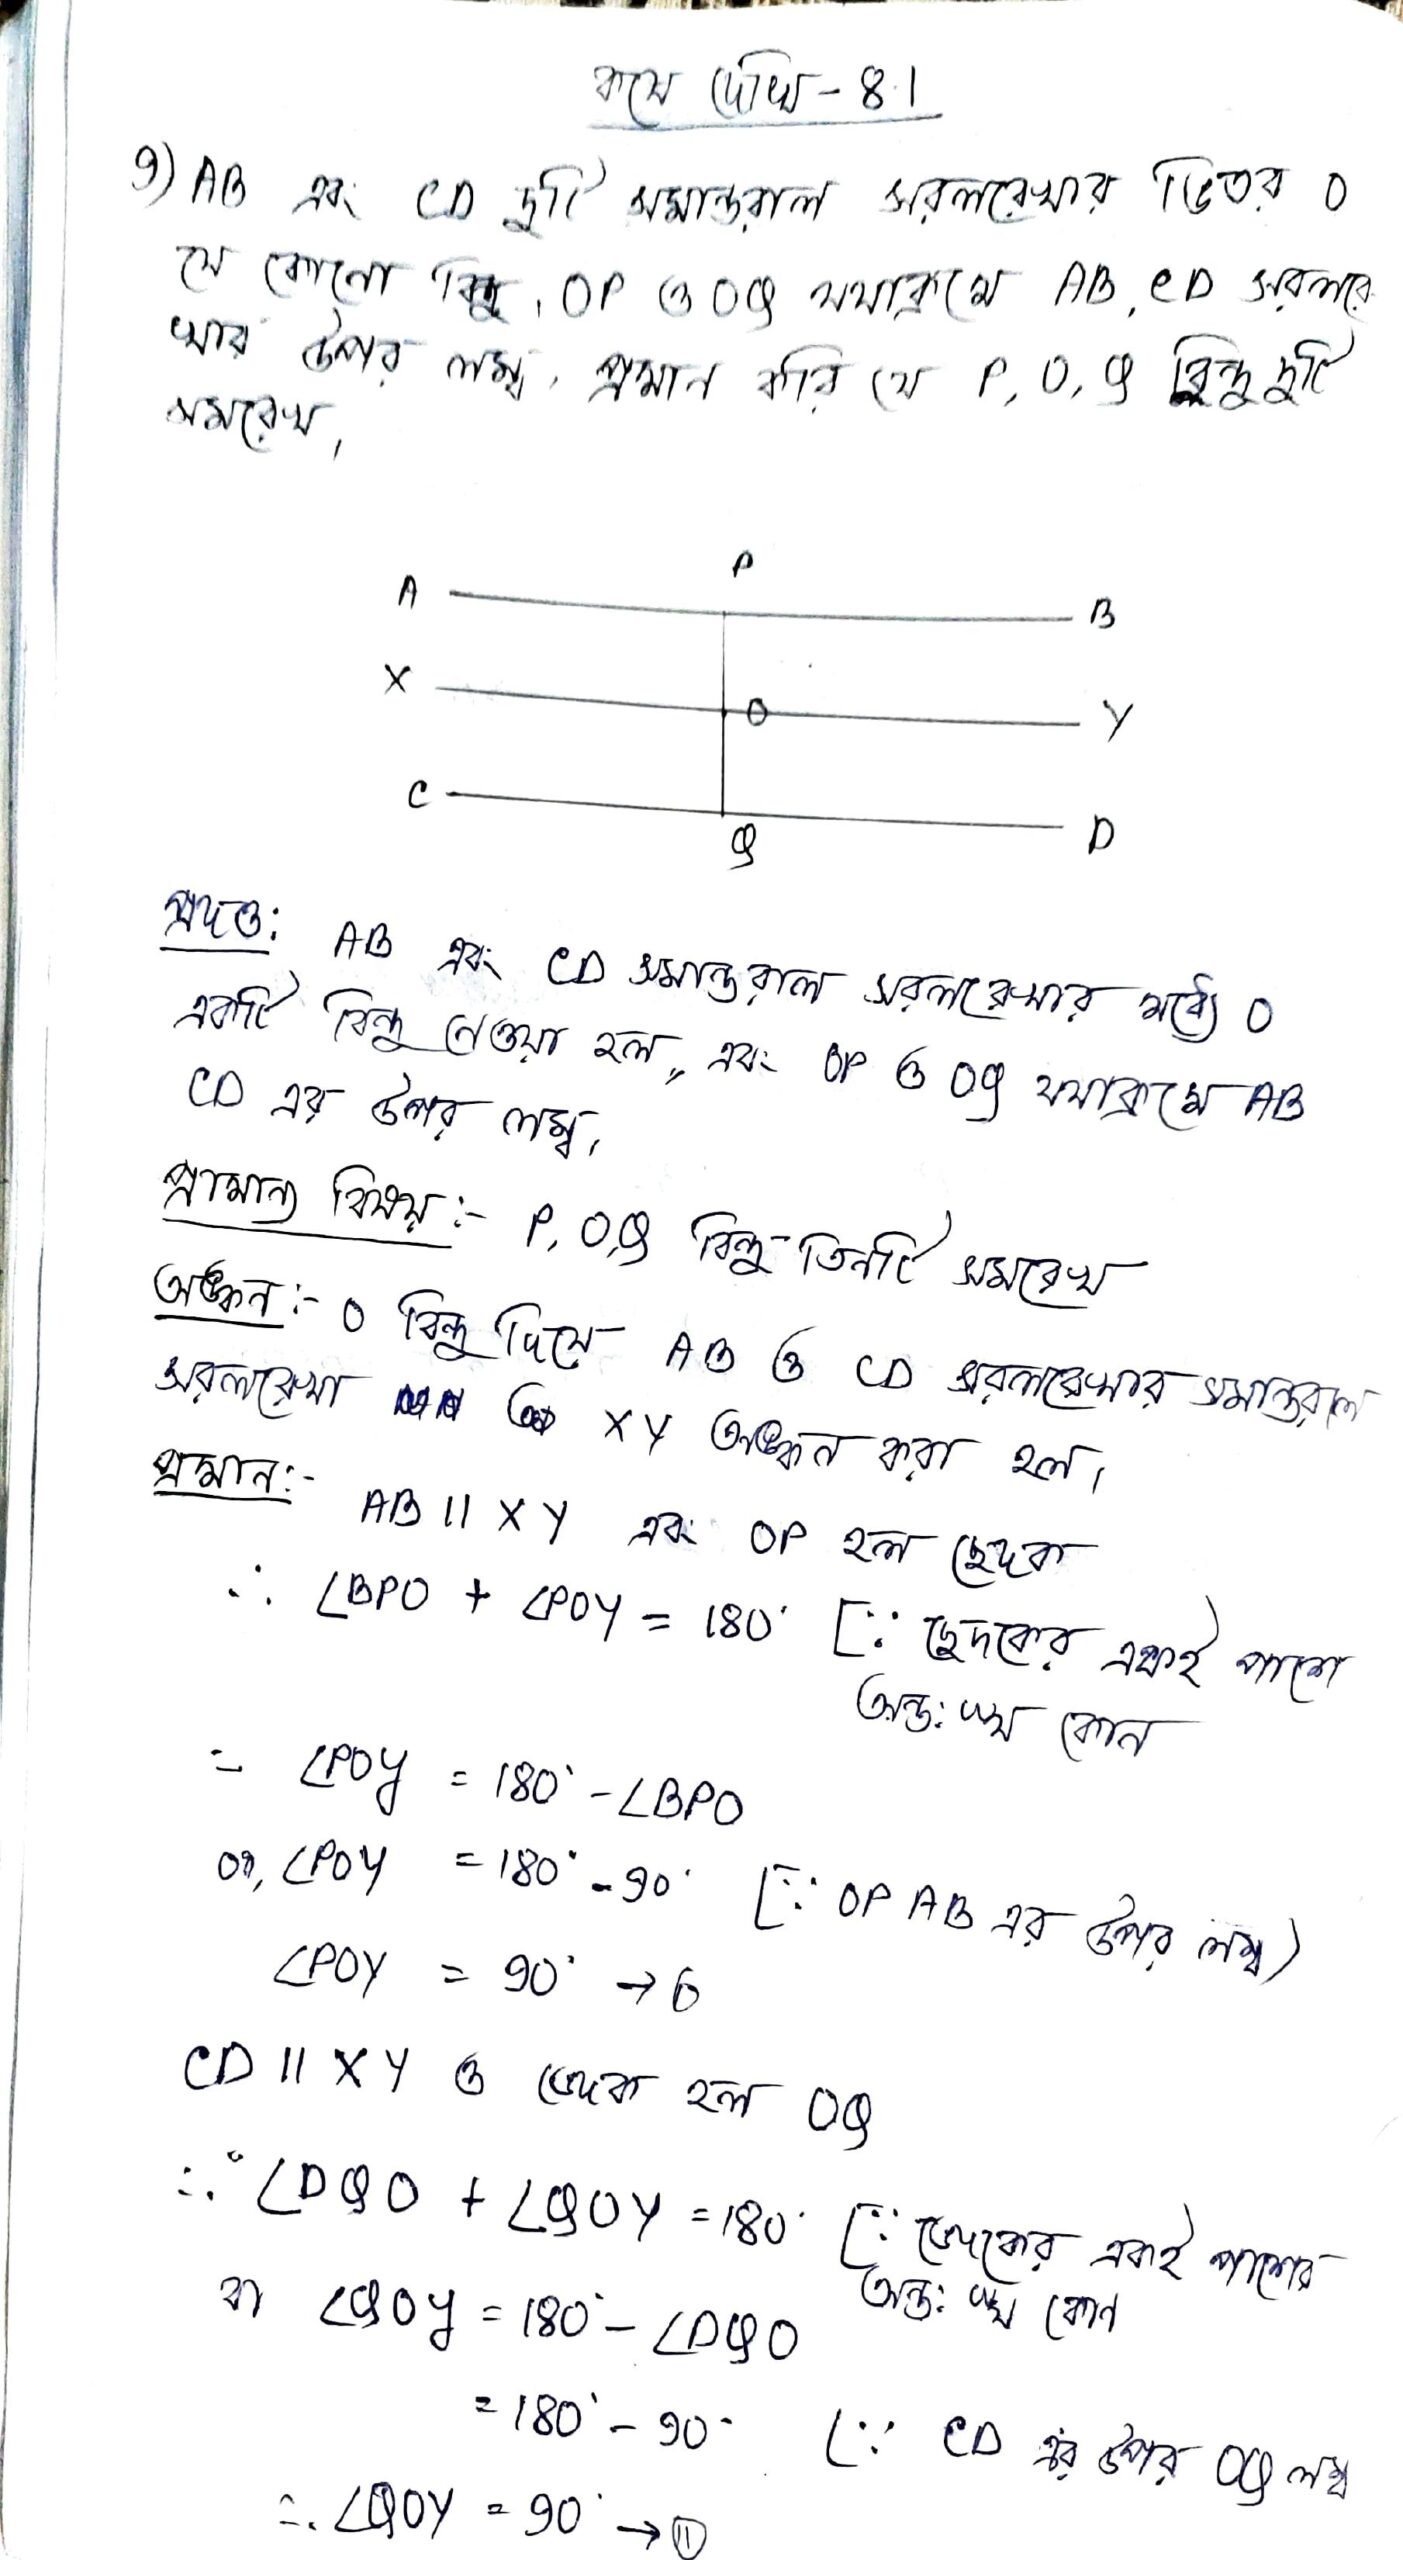 কষে দেখি - 8.1
9) AB এবং CD দুটি সমান্তরাল সরলরেখার ভিতর O
যে কোনো বিন্দু, OP ও OQ যথাক্রমে AB, CD সরলরে-
খার উপর লম্ব, প্রমান করি যে P, O, Q বিন্দু দুটি
সমরেখ,
P
A
B
X
O
Y
C
Q
D
প্রদত্ত: AB এবং CD সমান্তরাল সরলরেখার মধ্যে O
একটি বিন্দু নেওয়া হল, এবং OP ও OQ যথাক্রমে AB
CD এর উপর লম্ব,
প্রামান্য বিষয় :- P, O, Q বিন্দু তিনটি সমরেখ
অঙ্কন :- O বিন্দু দিয়ে AB ও CD সরলরেখার সমান্তরাল
সরলরেখা XY অঙ্কন করা হল,
প্রমান :- AB || XY এবং OP হল ছেদক
∴ ∠BPO + ∠POY = 180° [∵ ছেদকের একই পাশে
অন্ত:স্থ কোন
= ∠POY = 180° - ∠BPO
or, ∠POY = 180° - 90° [∵ OP AB এর উপর লম্ব)
∠POY = 90° →
CD || XY ও ছেদক হল OQ
∴ ∠DQO + ∠QOY = 180° [∵ ছেদকের একই পাশের
অন্ত:স্থ কোণ
বা ∠QOY = 180° - ∠DQO
= 180° - 90° [∵ CD এর উপর OQ লম্ব
∴ ∠QOY = 90° → ⑪